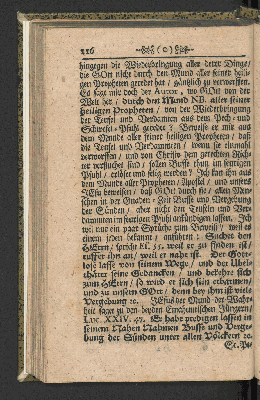 116 (0)
hingegen die Wiederbringung aller derer Dinge/
die GOtt nicht durch den Mund aller seiner heili-
gen Propheten geredet hat / gäntzlich zu verwerffen.
Es sage mir doch der Autor, wo GOtt von der
Welt her / durch den Mund NB. aller seiner
heiligen Propheten / von der Wiederbringung
der Teufel und Verdamten aus dem Pech- und
Schwefel-Pfuhl geredet? Beweise er mir aus
dem Munde aller seiner heiligen Propheten / daß
die Teufel und Verdamten / wenn sie einmahl
verworffen / und von Christo dem gerechten Rich-
ter verfluchet sind / sollen Busse thun im feurigen
Pfuhl / erlöset und selig werden? Ich kan ihm aus
dem Munde aller Propheten / Apostel / und unsers
JEsu beweisen / daß GOtt durch sie / allen Men-
schen in der Gnaden-Zeit Busse und Vergebung
der Sünden / aber nicht den Teufeln und Ver-
damten im feurigen Pfuhl ankündigen lassen. Ich
wil nur ein paar Sprüche zum Beweiß / weil es
einem jeden bekannt / anführen: Suchet den
HErrn / spricht Es. 55. weil er zu finden ist /
ruffet ihn an / weil er nahe ist. Der Gott-
lose lasse von seinem Wege / und der Übel-
thäter seine Gedancken / und bekehre sich
zum HErrn / so wird er sich sein erbarmen /
und zu unserm GOtt / denn bey ihm ist viel
Vergebung ꝛc. JEsus der Mund der Wahr-
heit saget zu den beyden Emahuntischen Jüngern /
Luc. XXIV. 47. Er habe predigen lassen in
seinem Nahmen Busse und Verge-
bung der Sünden unter allen Völckern ꝛc.